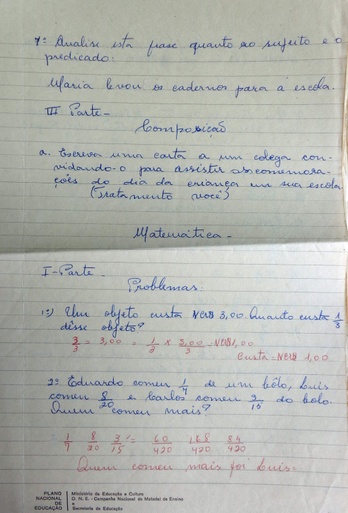 7º Analise esta frase quanto ao sujeito e o
predicado:
Maria levou os cadernos para a escola.
III Parte-
Composição
a. Escreva uma carta a um colega con-
vidando-o para assistir as comemora-
ções do dia da criança em sua escola
(tratamento você)
Matemática-
I-Parte-
Problemas
1º) Um objeto custa NCr$ 3,00. Quanto custa 1/3
dêsse objeto?
3/3 = 3,00 = 1/3 x 3,00/3 = NCr$ 1,00
Custa = NCr$ 1,00
2º Eduardo comeu 1/7 de um bôlo, Luis
comeu 8/20 e Carlos comeu 3/15 do bolo.
Quem comeu mais?
1/7 8/20 3/15 = 60/420 168/420 84/420
Quem comeu mais foi Luis.
PLANO NACIONAL DE EDUCAÇÃO
Ministério da Educação e Cultura
D. N. E. - Campanha Nacional de Material de Ensino
e
Secretaria de Educação